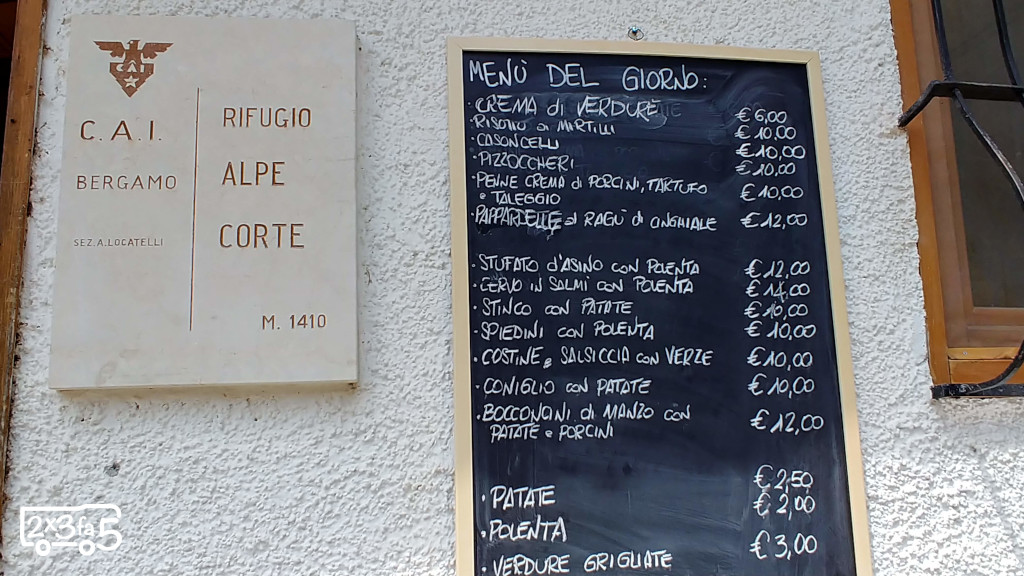 CAI
C.A.I.
BERGAMO
SEZ.A.LOCATELLI
RIFUGIO
ALPE
CORTE
M. 1410
MENÙ DEL GIORNO:
· CREMA di VERDURE € 6,00
· RISOTTO ai MIRTILLI € 10,00
· CASONCELLI € 10,00
· PIZZOCCHERI € 10,00
· PENNE CREMA di PORCINI, TARTUFO € 10,00
e TALEGGIO
· PAPPARDELLE al RAGÙ di CINGHIALE € 12,00
· STUFATO d'ASINO con POLENTA € 12,00
· CERVO IN SALMI con POLENTA € 14,00
· STINCO con PATATE € 10,00
· SPIEDINI con POLENTA € 10,00
· COSTINE e SALSICCIA con VERZE € 10,00
· CONIGLIO con PATATE € 10,00
· BOCCONCINI di MANZO con € 12,00
PATATE e PORCINI
· PATATE € 2,50
· POLENTA € 2,00
· VERDURE GRIGLIATE € 3,00
2x3fa5